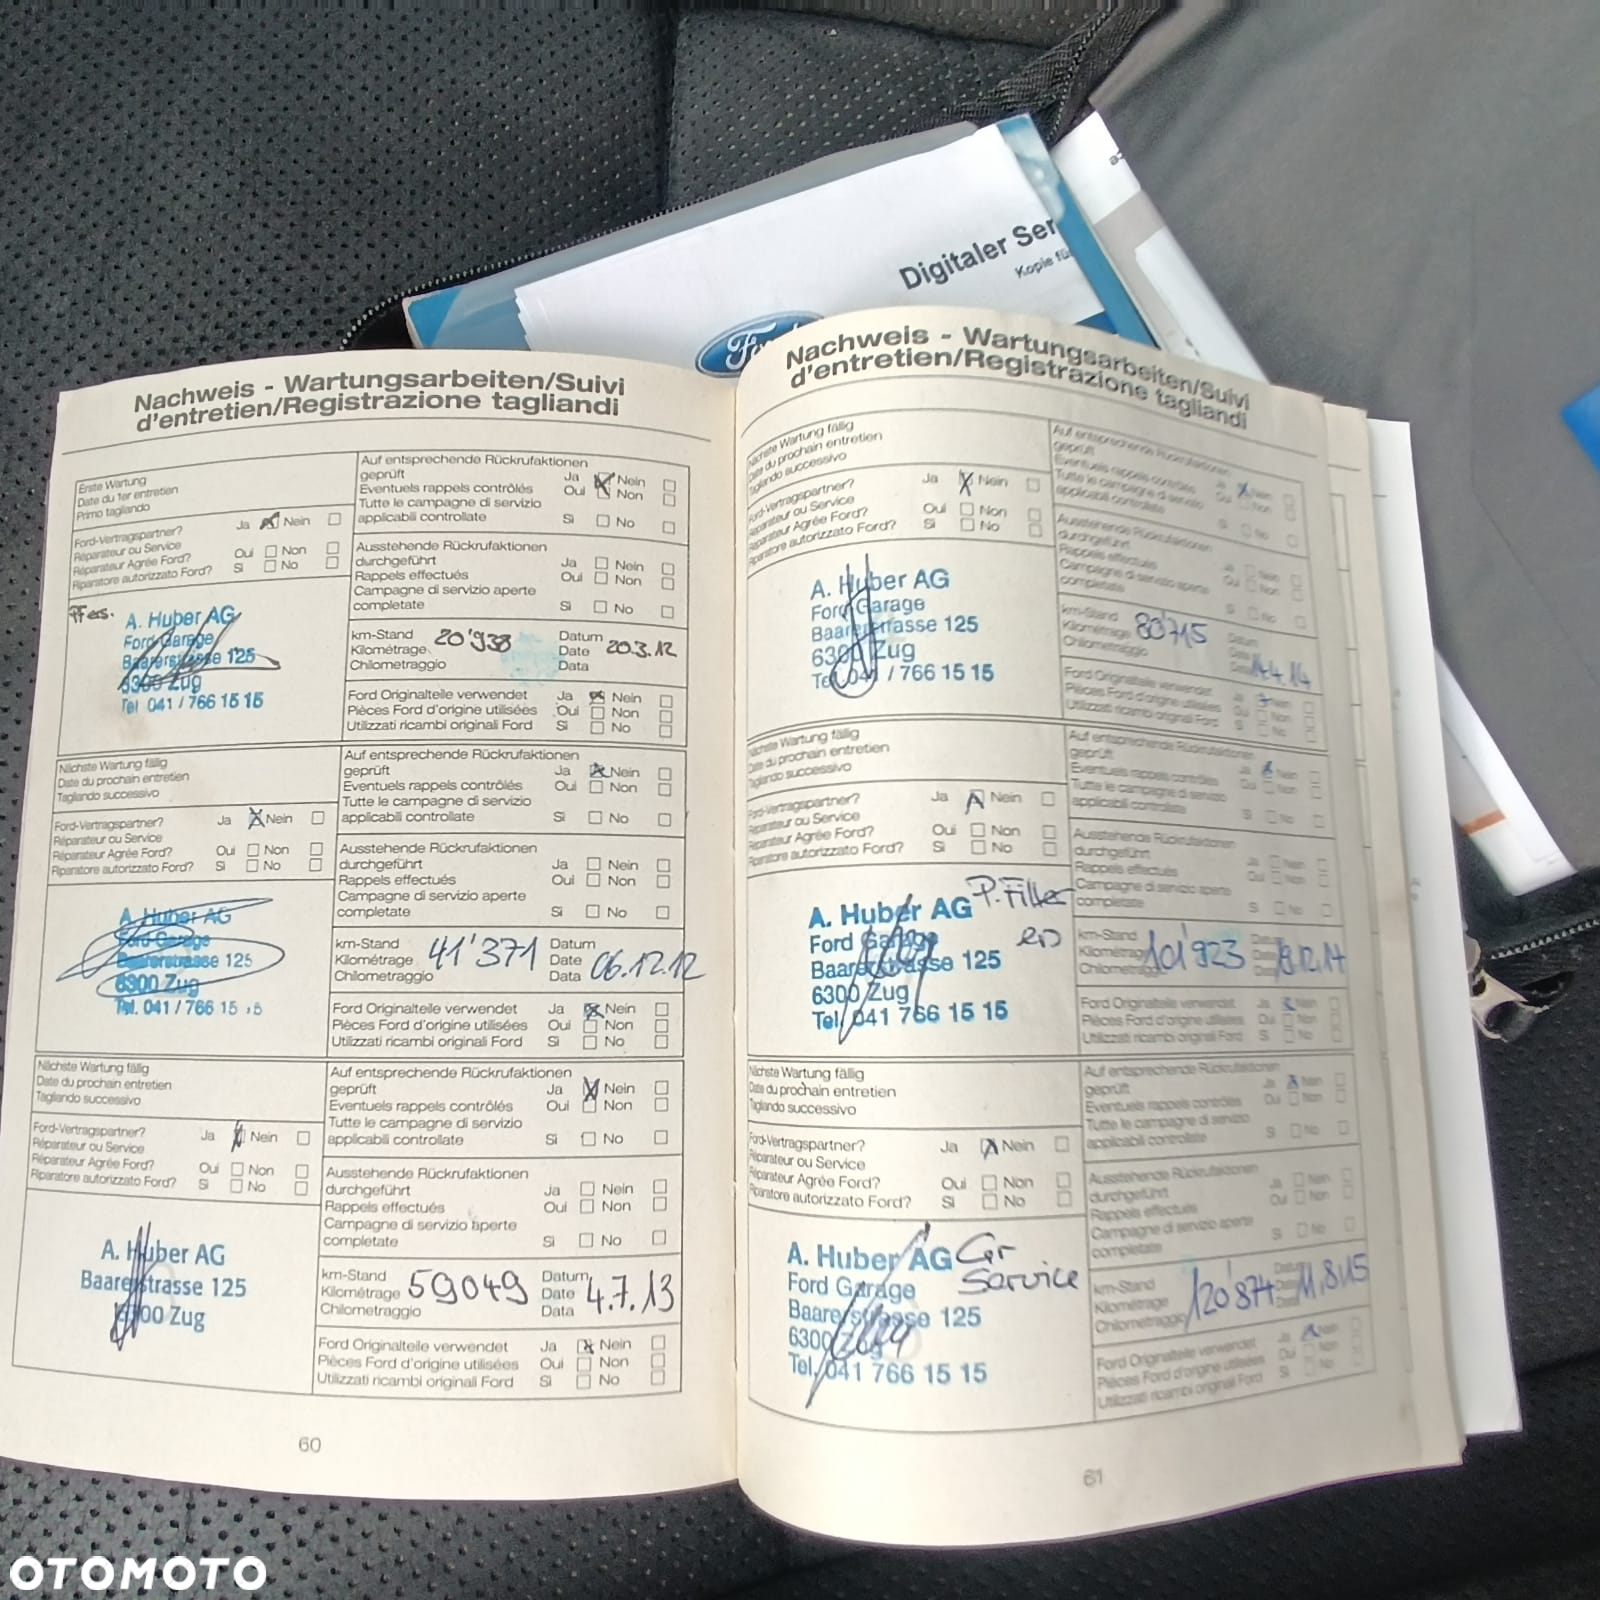 Digitaler Ser
Kopie fü
Ford
Nachweis - Wartungsarbeiten/Suivi
d'entretien/Registrazione tagliandi
Erste Wartung
Date du 1er entretien
Primo tagliando
Ford-Vertragspartner? Ja Nein
Réparateur ou Service
Réparateur Agrée Ford? Oui Non
Riparatore autorizzato Ford? Si No
A. Huber AG
Ford Garage
Baarerstrasse 125
6300 Zug
Tel 041 / 766 15 15
Auf entsprechende Rückrufaktionen
geprüft Ja Nein
Eventuels rappels contrôlés Oui Non
Tutte le campagne di servizio
applicabili controllate Si No
Ausstehende Rückrufaktionen
durchgeführt Ja Nein
Rappels effectués Oui Non
Campagne di servizio aperte
completate Si No
km-Stand Datum
Kilométrage 20'938 Date 20.3.12
Chilometraggio Data
Ford Originalteile verwendet Ja Nein
Pièces Ford d'origine utilisées Oui Non
Utilizzati ricambi originali Ford Si No
Nächste Wartung fällig
Date du prochain entretien
Tagliando successivo
Ford-Vertragspartner? Ja Nein
Réparateur ou Service
Réparateur Agrée Ford? Oui Non
Riparatore autorizzato Ford? Si No
A. Huber AG
Ford Garage
Baarerstrasse 125
6300 Zug
Tel. 041 / 766 15 15
Auf entsprechende Rückrufaktionen
geprüft Ja Nein
Eventuels rappels contrôlés Oui Non
Tutte le campagne di servizio
applicabili controllate Si No
Ausstehende Rückrufaktionen
durchgeführt Ja Nein
Rappels effectués Oui Non
Campagne di servizio aperte
completate Si No
km-Stand Datum
Kilométrage 41'371 Date
Chilometraggio Data 06.12.12
Ford Originalteile verwendet Ja Nein
Pièces Ford d'origine utilisées Oui Non
Utilizzati ricambi originali Ford Si No
Nächste Wartung fällig
Date du prochain entretien
Tagliando successivo
Ford-Vertragspartner? Ja Nein
Réparateur ou Service
Réparateur Agrée Ford? Oui Non
Riparatore autorizzato Ford? Si No
A. Huber AG
Baarerstrasse 125
6300 Zug
Auf entsprechende Rückrufaktionen
geprüft Ja Nein
Eventuels rappels contrôlés Oui Non
Tutte le campagne di servizio
applicabili controllate Si No
Ausstehende Rückrufaktionen
durchgeführt Ja Nein
Rappels effectués Oui Non
Campagne di servizio aperte
completate Si No
km-Stand Datum
Kilométrage 59049 Date 4.7.13
Chilometraggio Data
Ford Originalteile verwendet Ja Nein
Pièces Ford d'origine utilisées Oui Non
Utilizzati ricambi originali Ford Si No
60
Nachweis - Wartungsarbeiten/Suivi
d'entretien/Registrazione tagliandi
Nächste Wartung fällig
Date du prochain entretien
Tagliando successivo
Ford-Vertragspartner? Ja Nein
Réparateur ou Service
Réparateur Agrée Ford? Oui Non
Riparatore autorizzato Ford? Si No
A. Huber AG
Ford Garage
Baarerstrasse 125
6300 Zug
Tel. 041 / 766 15 15
Auf entsprechende Rückrufaktionen
geprüft Nein
Eventuels rappels contrôlés Oui Non
Tutte le campagne di servizio
applicabili controllate Si No
Ausstehende Rückrufaktionen
durchgeführt Ja Nein
Rappels effectués Oui Non
Campagne di servizio aperte
completate Si No
km-Stand Datum
Kilométrage 80'715
Chilometraggio
Ford Originalteile verwendet Ja Nein
Pièces Ford d'origine utilisées Oui Non
Utilizzati ricambi originali Ford Si No
Nächste Wartung fällig
Date du prochain entretien
Tagliando successivo
Ford-Vertragspartner? Ja Nein
Réparateur ou Service
Réparateur Agrée Ford? Oui Non
Riparatore autorizzato Ford? Si No
A. Huber AG P. Filter
Ford Garage
Baarerstrasse 125
6300 Zug
Tel. 041 766 15 15
Auf entsprechende Rückrufaktionen
geprüft Ja Nein
Eventuels rappels contrôlés Oui Non
Tutte le campagne di servizio
applicabili controllate Si No
Ausstehende Rückrufaktionen
durchgeführt Ja Nein
Rappels effectués Oui Non
Campagne di servizio aperte
completate Si No
km-Stand Datum
Kilométrage 101'923
Chilometraggio
Ford Originalteile verwendet Ja Nein
Pièces Ford d'origine utilisées Oui Non
Utilizzati ricambi originali Ford Si No
Nächste Wartung fällig
Date du prochain entretien
Tagliando successivo
Ford-Vertragspartner? Ja Nein
Réparateur ou Service
Réparateur Agrée Ford? Oui Non
Riparatore autorizzato Ford? Si No
A. Huber AG Gr
Ford Garage Service
Baarerstrasse 125
6300 Zug
Tel. 041 766 15 15
Auf entsprechende Rückrufaktionen
geprüft Ja Nein
Eventuels rappels contrôlés Oui Non
Tutte le campagne di servizio
applicabili controllate Si No
Ausstehende Rückrufaktionen
durchgeführt Ja Nein
Rappels effectués Oui Non
Campagne di servizio aperte
completate Si No
km-Stand Datum
Kilométrage 120'874 11.8.15
Chilometraggio
Ford Originalteile verwendet Ja Nein
Pièces Ford d'origine utilisées Oui Non
Utilizzati ricambi originali Ford Si No
61
OTOMOTO